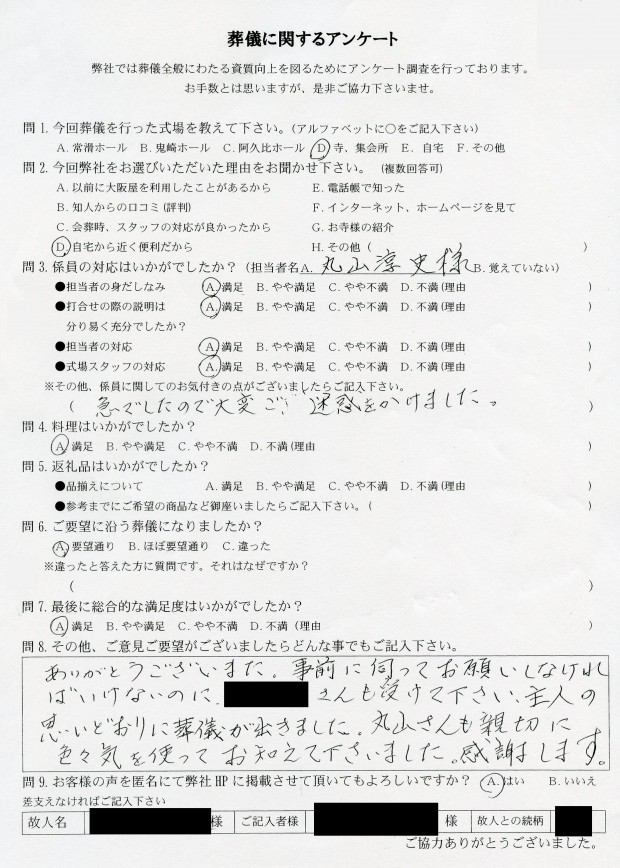 葬儀に関するアンケート
弊社では葬儀全般にわたる資質向上を図るためにアンケート調査を行っております。
お手数とは思いますが、是非ご協力下さいませ。
問1.今回葬儀を行った式場を教えて下さい。(アルファベットに○をご記入下さい)
A.常滑ホール B.鬼崎ホール C.阿久比ホール D.寺、集会所 E.自宅 F.その他
問2.今回弊社をお選びいただいた理由をお聞かせ下さい。(複数回答可)
A.以前に大阪屋を利用したことがあるから E.電話帳で知った
B.知人からの口コミ(評判) F.インターネット、ホームページを見て
C.会葬時、スタッフの対応が良かったから G.お寺様の紹介
D.自宅から近く便利だから H.その他( )
問3.係員の対応はいかがでしたか?(担当者名A.丸山淳史様 B.覚えていない)
●担当者の身だしなみ A.満足 B.やや満足 C.やや不満 D.不満(理由 )
●打合せの際の説明は A.満足 B.やや満足 C.やや不満 D.不満(理由 )
分り易く充分でしたか?
●担当者の対応 A.満足 B.やや満足 C.やや不満 D.不満(理由 )
●式場スタッフの対応 A.満足 B.やや満足 C.やや不満 D.不満(理由 )
※その他、係員に関してのお気付きの点がございましたらご記入下さい。
( 急でしたので大変ご迷惑をかけました。 )
問4.料理はいかがでしたか?
A.満足 B.やや満足 C.やや不満 D.不満(理由 )
問5.返礼品はいかがでしたか?
●品揃えについて A.満足 B.やや満足 C.やや不満 D.不満(理由 )
●参考までにご希望の商品など御座いましたらご記入下さい。( )
問6.ご要望に沿う葬儀になりましたか?
A.要望通り B.ほぼ要望通り C.違った
※違ったと答えた方に質問です。それはなぜですか?
( )
問7.最後に総合的な満足度はいかがでしたか?
A.満足 B.やや満足 C.やや不満 D.不満(理由 )
問8.その他、ご意見ご要望がございましたらどんな事でもご記入下さい。
ありがとうございまた。事前に伺ってお願いしなけれ
ばいけないのに、 さんも受けて下さい、主人の
思いどおりに葬儀が出きました。丸山さんも親切に
色々気を使って お知えて下さいました。感謝します。
問9.お客様の声を匿名にて弊社HPに掲載させて頂いてもよろしいですか? A.はい B.いいえ
差支えなければご記入下さい
故人名 様 ご記入者様 様 故人との続柄
ご協力ありがとうございました。